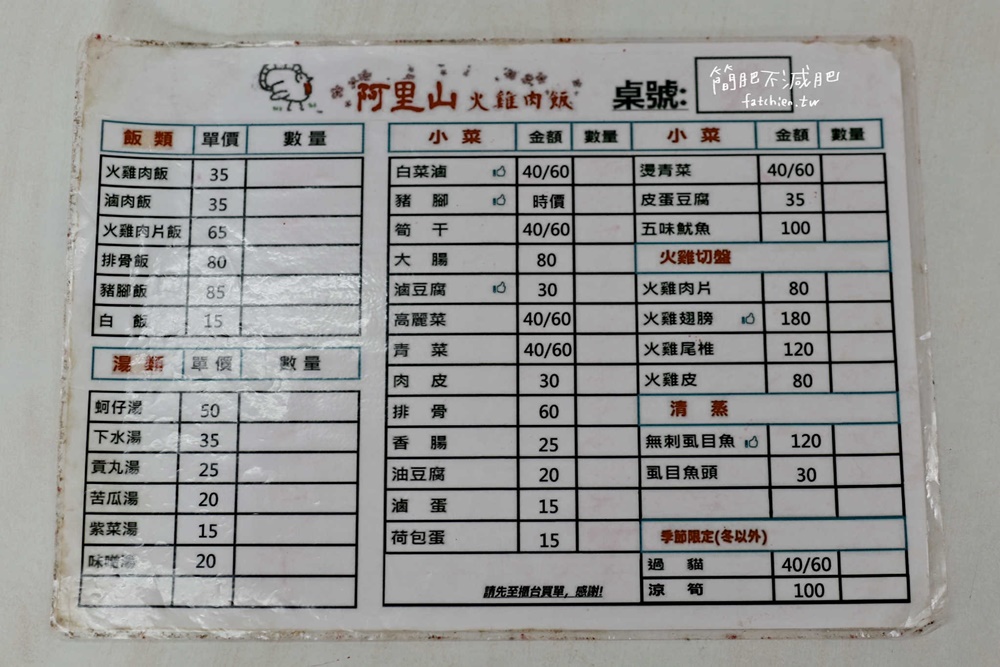 阿里山火雞肉飯 桌號:
簡肥不減肥
fatchien.tw
飯類 單價 數量
火雞肉飯 35
滷肉飯 35
火雞肉片飯 65
排骨飯 80
豬腳飯 85
白飯 15
湯類 單價 數量
蚵仔湯 50
下水湯 35
貢丸湯 25
苦瓜湯 20
紫菜湯 15
味噌湯 20
小菜 金額 數量
白菜滷 40/60
豬腳 時價
筍干 40/60
大腸 80
滷豆腐 30
高麗菜 40/60
青菜 40/60
肉皮 30
排骨 60
香腸 25
油豆腐 20
滷蛋 15
荷包蛋 15
請先至櫃台買單，感謝!
小菜 金額 數量
燙青菜 40/60
皮蛋豆腐 35
五味魷魚 100
火雞切盤
火雞肉片 80
火雞翅膀 180
火雞尾椎 120
火雞皮 80
清蒸
無刺虱目魚 120
虱目魚頭 30
季節限定(冬以外)
過貓 40/60
涼筍 100